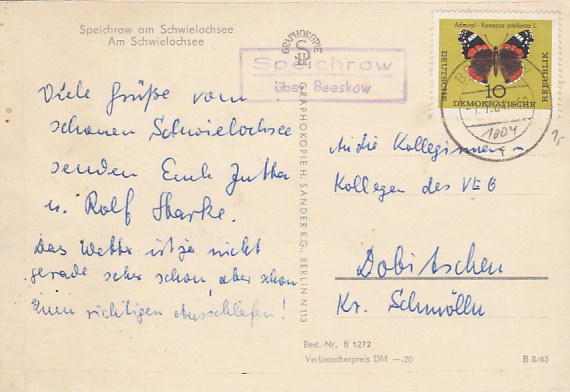 Speichrow am Schwielochsee
Am Schwielochsee
Viele Grüße vom
schönen Schwielochsee
senden Euch Jutta
u. Rolf Starke.
Das Wetter ist ja nicht
gerade sehr schön, aber schon
zum richtigen Ausschlafen!
GRAPHOKOPIE
Speichrow
über Beeskow
GRAPHOKOPIE H. SANDER KG., BERLIN N 113
Admiral - Vanessa atalanta L.
DEUTSCHE
10
DEMOKRATISCHE
REPUBLIK
An die Kolleginnen u.
Kollegen des VEB
Dobitschen
Kr. Schmölln
Best.-Nr. B 1272
Verbraucherpreis DM —.20
B 8/63